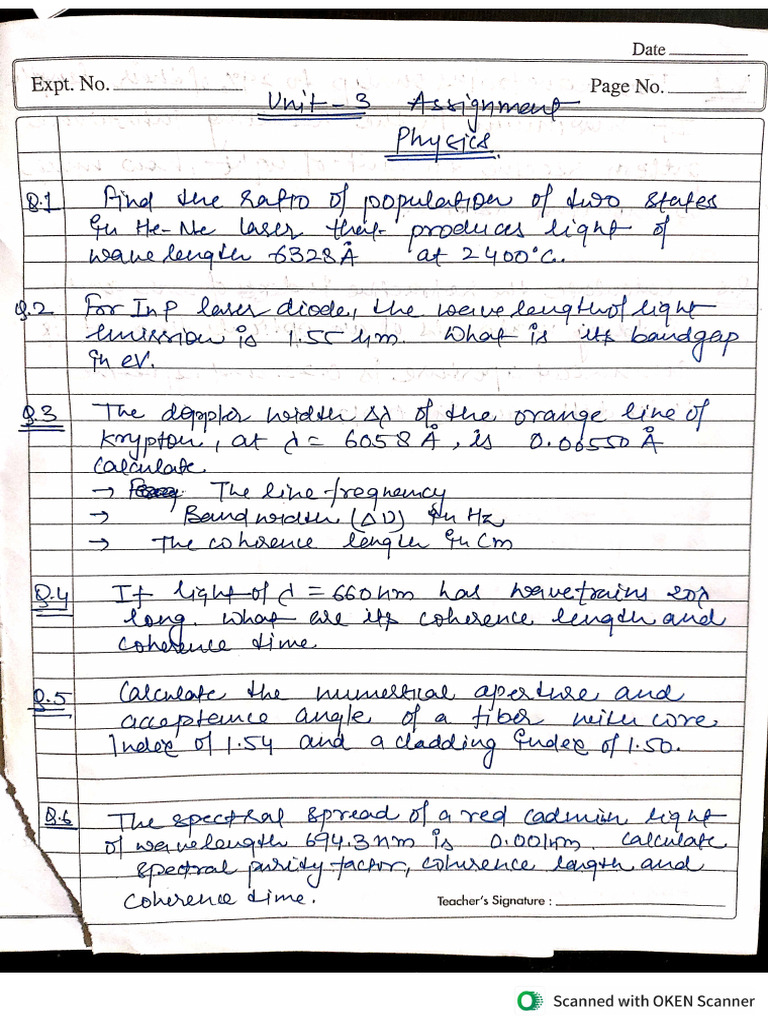 Date
Expt. No.
Page No.
Unit - 3 Assignment
Physics.
Q.1 Find the ratio of population of two states
in He-Ne laser that produces light of
wavelength 6328 Å at 2400°C.
Q.2 For InP laser diode, the wavelength of light
emission is 1.55 μm. What is its bandgap
in eV.
Q.3 The doppler width Δλ of the orange line of
krypton, at λ = 6058 Å, is 0.00550 Å
calculate
→ The line frequency
→ Bandwidth (Δν) in Hz
→ The coherence length in cm
Q.4 If light of λ = 660 nm has wavetrains 20λ
long. what are its coherence length and
coherence time.
Q.5 Calculate the numerical aperture and
acceptance angle of a fiber with core
Index of 1.54 and a cladding index of 1.50.
Q.6 The spectral spread of a red cadmium light
of wavelength 694.3 nm is 0.001 nm. Calculate
spectral purity factor, coherence length and
coherence time.
Teacher's Signature :
Scanned with OKEN Scanner